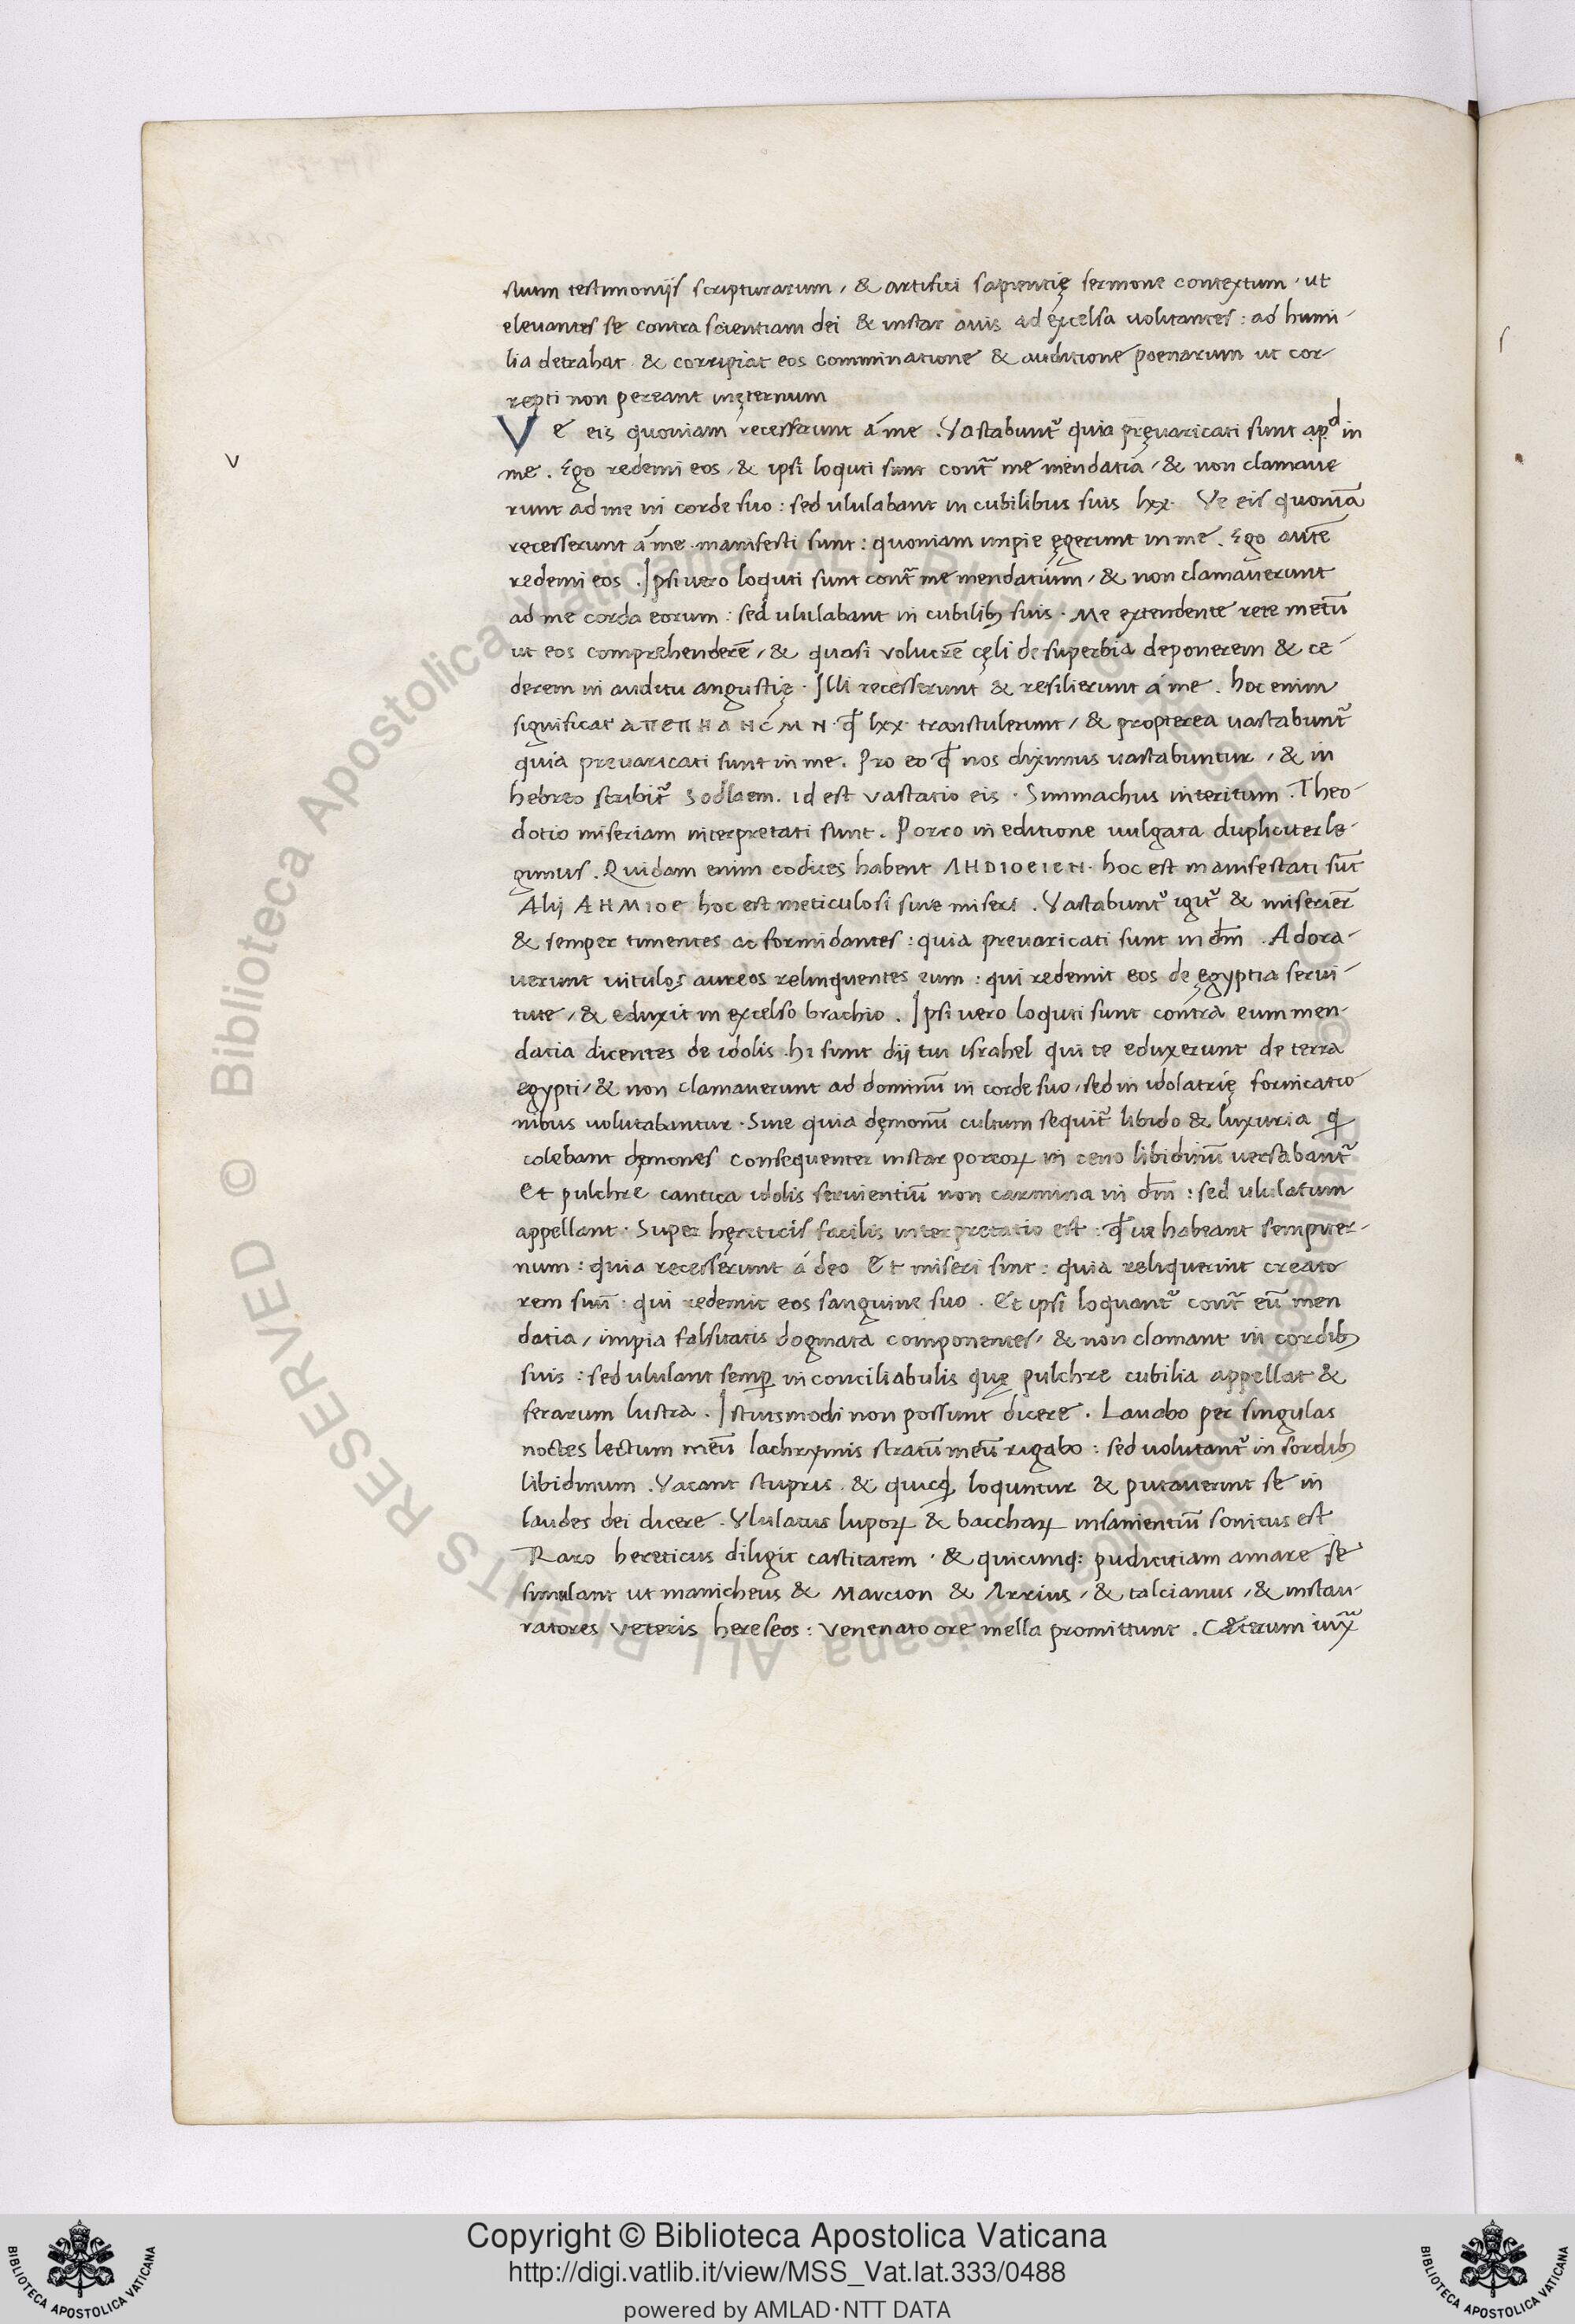 suum testimonijs scripturarum, & artifici sapientię sermone contextum, ut
elevantes se contra scientiam dei & instar avis ad excelsa volitantes: ad humi-
lia detrahat. & corripiat eos comminatione & auditione poenarum ut cor-
repti non pereant inęternum
Ve eis quoniam recesserunt á me. Vastabuntᷣ quia pręvaricati sunt apd in
me. Ego redemi eos, & ipsi loquti sunt contᷣ me mendatia, & non clamave
runt ad me in corde suo: sed ululabant in cubilibus suis lxx. Ve eis quonia̅
recesserunt á me. manifesti sunt: quoniam impie ęgerunt in me. Ego aute̅
redemi eos. Ipsi vero loquti sunt contᷣ me mendatium, & non clamaverunt
ad me corda eorum: sed ululabant in cubilibꝫ suis. Me extendente rete metu̅
ut eos comprehendere̅, & quasi volucre̅ cęli de superbia deponerem & ce-
derem in auditu angustię. Illi recesserunt & resilierunt á me. hoc enim
significat ΑΠΕΠΗΑΝCΜΝ. qd̅ lxx. transtulerunt, & propterea vastabuntᷣ
quia prevaricati sunt in me. Pro eo qd̅ nos diximus vastabuntur, & in
hebreo scribitᷣ sodlaem. id est vastatio eis. Simmachus interitum. Theo-
dotio miseriam interpretati sunt. Porro in editione vulgata dupliciter le-
gimus. Quidam enim codices habent ΛΗDΙΟΕΙΕΝ. hoc est manifestati su̅t
Alij ΑΗΜΙΟΕ hoc est meticulosi sive miseri. Vastabuntᷣ igitᷣ & miseri er̅
& semper timentes ac formidantes: quia prevaricati sunt in dm̅. Adora-
verunt vitulos aureos relinquentes eum: qui redemit eos de ęgyptia servi-
tute, & eduxit in excelso brachio. Ipsi vero loquti sunt contra eum men-
datia dicentes de idolis. hi sunt dij tui israhel qui te eduxerunt de terra
egypti, & non clamaverunt ad dominu̅ in corde suo, sed in idolatrię fornicatio
nibus volutabantur. Sive quia dęmonu̅ cultum sequitᷣ libido & luxuria q
colebant dęmones consequenter instar porcoꝝ in ceno libidinu̅ versabantᷣ
Et pulchre cantica idolis servientiu̅ non carmina in dm̅: sed ululatum
appellant. Super hęreticis facilis interpretatio est: qd̅ ve habeant sempiter-
num: quia recesserunt á deo Et miseri sint: quia reliquerint creato
rem suu̅: qui redemit eos sanguine suo. Et ipsi loquantᷣ contᷣ eu̅ men
datia, impia falsitatis dogmata componentes, & non clamant in cordibꝫ
suis: sed ululant semp̲ in conciliabulis quę pulchre cubilia appellat &
ferarum lustra. Istiusmodi non possunt dicere. Lavabo per singulas
noctes lectum meu̅ lachrymis stratu̅ meu̅ rigabo: sed volutantᷣ in sordibꝫ
libidinum. Vacant stupris. & quicqd loquntur & putaverint se in
laudes dei dicere. Ululatus lupoꝝ & bacchaꝝ insanientiu̅ sonitus est
Raro hereticus diligit castitatem. & quicunq: pudicitiam amare se
simulant ut manicheus & Marcion & Arrius, & talcianus, & instau-
ratores veteris hereseos: venenato ore mella promittunt. Cæterum iuxᷓ
V
Copyright © Biblioteca Apostolica Vaticana
http://digi.vatlib.it/view/MSS_Vat.lat.333/0488
powered by AMLAD·NTT DATA